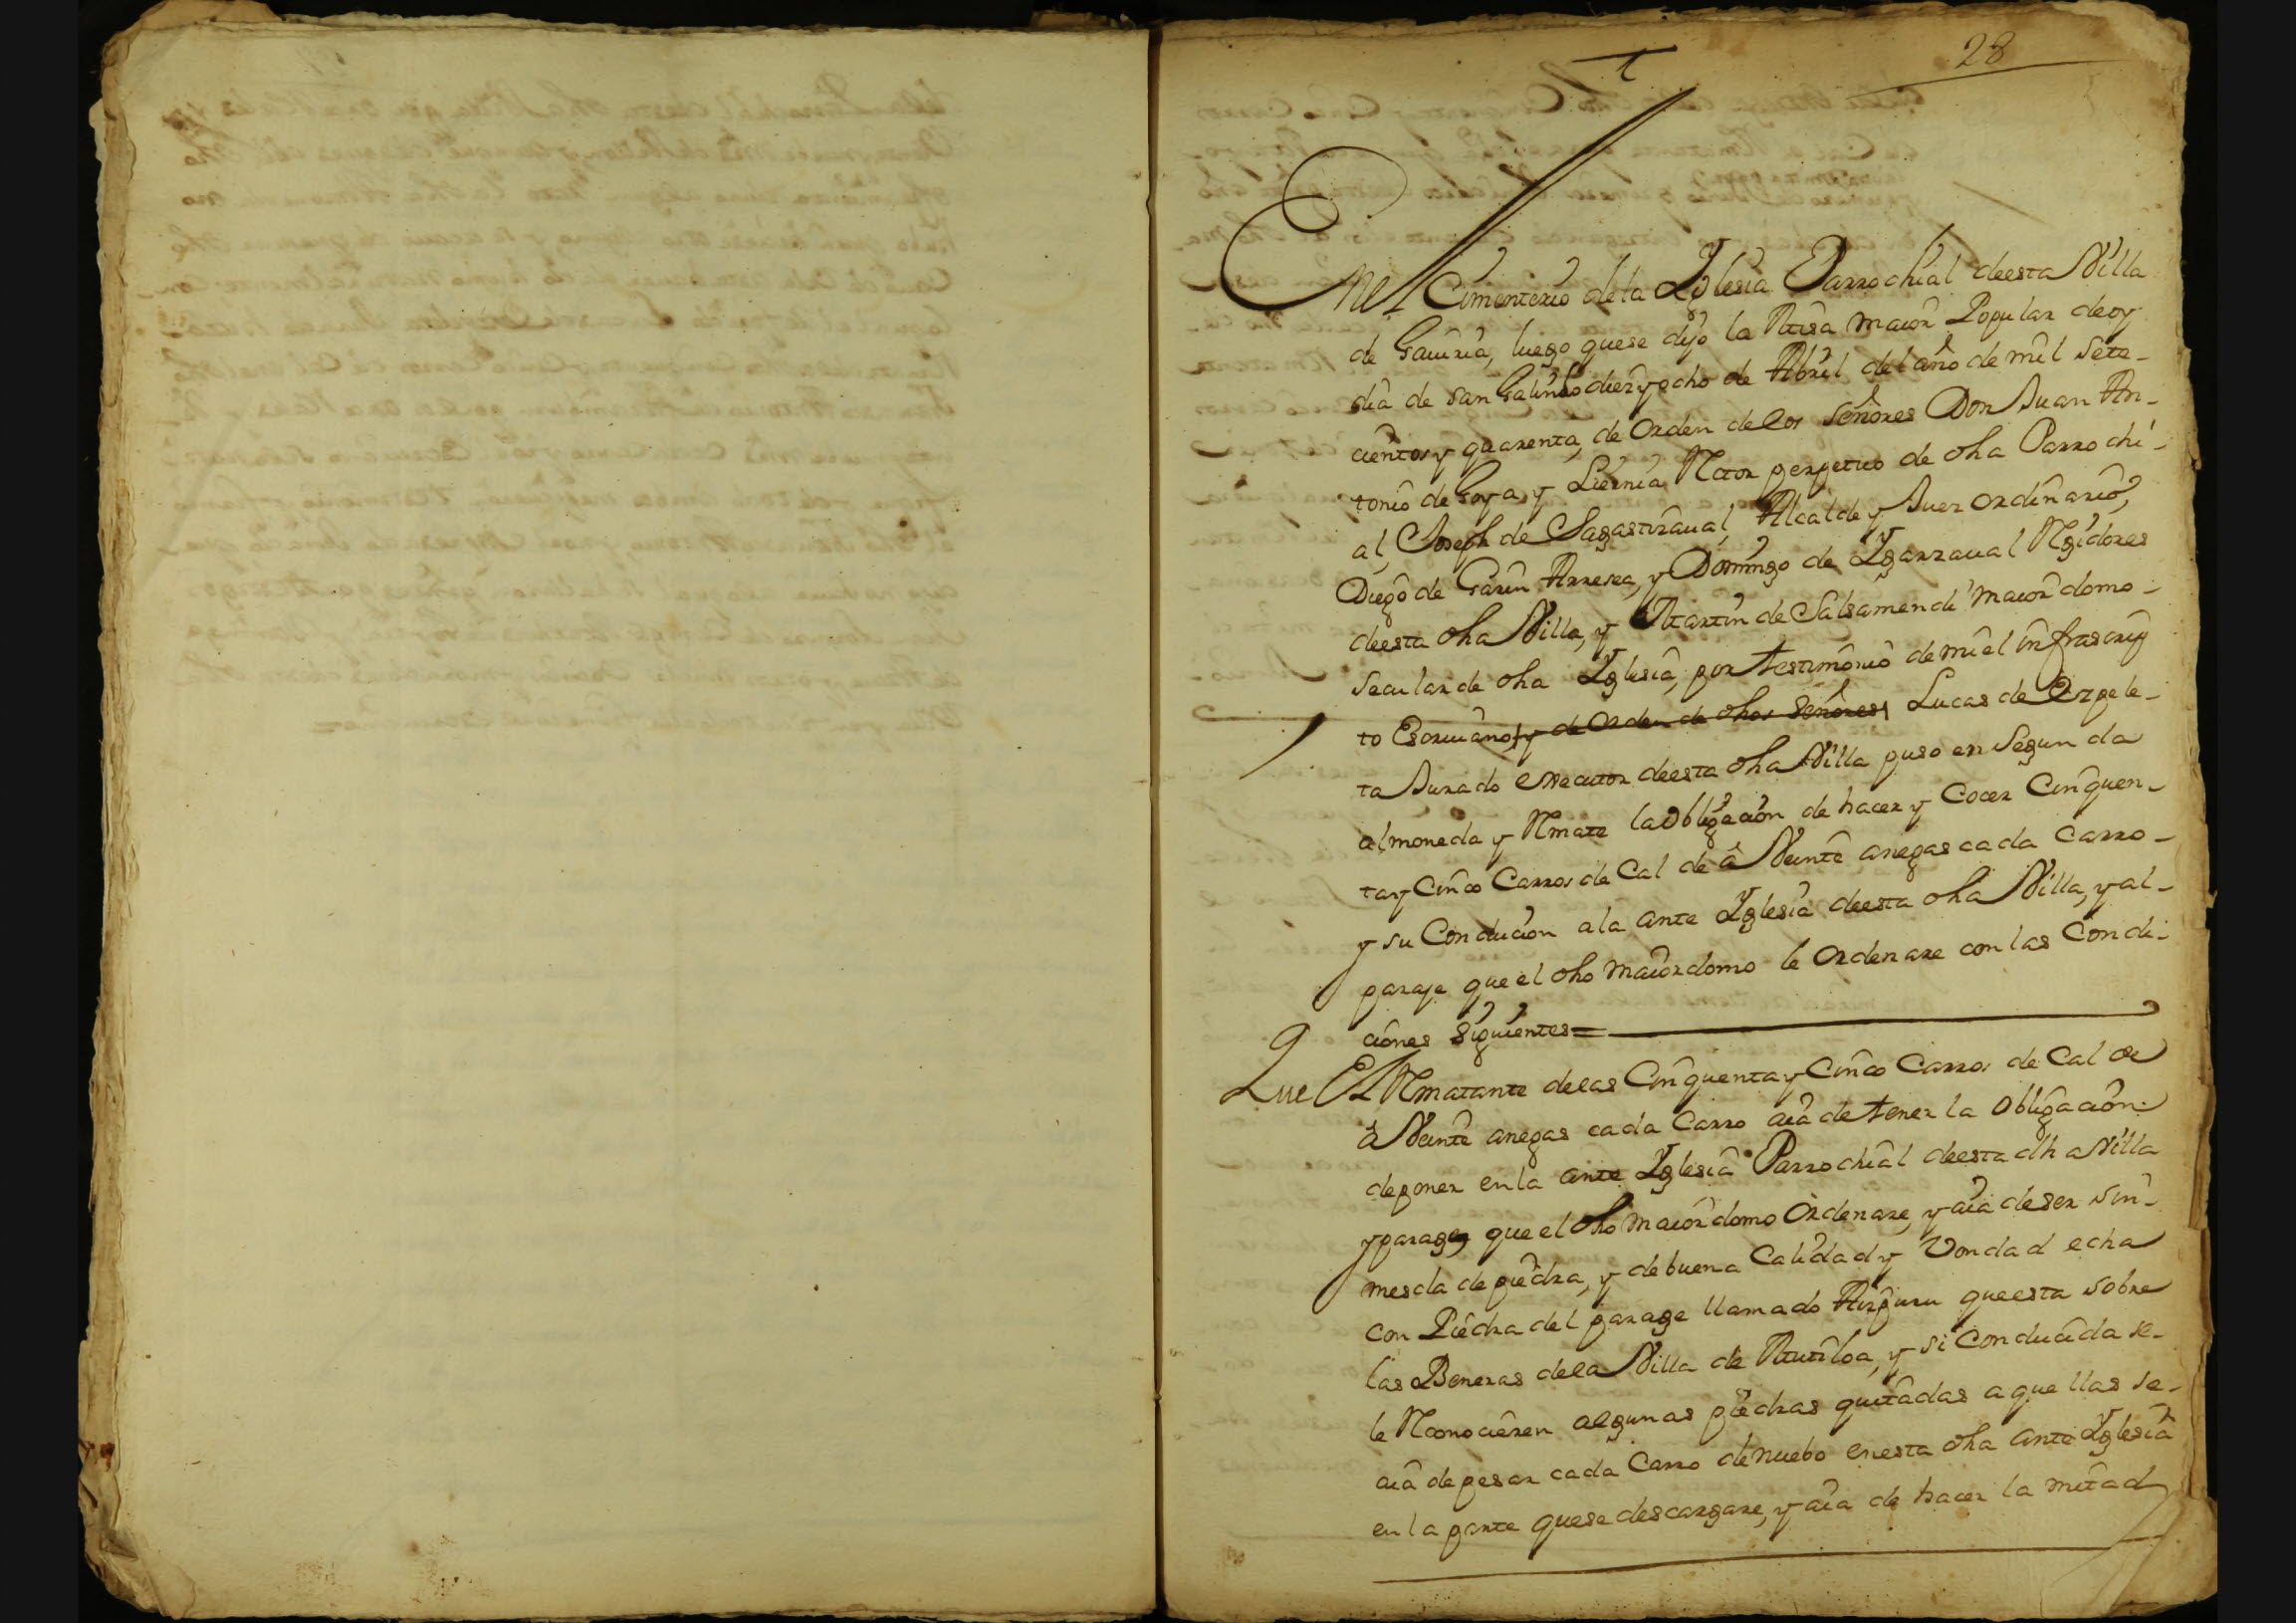 28
En el Cimenterio de la Yglesia Parrochial deesta Villa
de Gauiria, luego quese dijo la Misa maior Popular de oy
dia de san Galindo diez y ocho de Abril del año de mil sete-
cientos y quarenta, de Orden de los Señores Don Juan An-
tonio de Goya y Liernia Retor perpetuo de dha Parrochi-
al, Joseph de Sagastizaual, Alcalde y Juez ordinario,
Diego de Garin Arresea, y Domingo de Ygarzaual Regidores
deesta dha Villa, y Martin de Salsamendi maiordomo-
secular de dha Yglesia, por testimonio de mi el infrascrip
to Escriuano, y de Orden de dhos Señores, Lucas de Ezpele-
ta Jurado executor deesta dha Villa puso en Segunda
almoneda y Remate la obligacion de hacer y Cocer Cinquen-
ta y Cinco Carros de Cal de â Veinte anegas cada Carro-
y su Conducion a la ante Yglesia deesta dha Villa, y al-
paraje que el dho maiordomo le Ordenare con las Condi-
ciones Siguientes=
Que El Rematante de las Cinquenta y Cinco Carros de Cal de
â Veinte anegas cada Carro aia de tener la Obligacion
de poner en la ante Yglesia Parrochial deesta dha Villa
y parage que el dho maiordomo Ordenare, y aia de ser sin-
mescla de piedra, y de buena Calidad y Vondad echa
con Piedra del parage llamado Aizpuru que esta sobre
las Beneras de la Villa de Mutiloa, y si Conducida se-
le Reconocieren algunas piedras quitadas aquellas se-
aia de pesar cada Carro de nuebo en esta dha ante Yglesia
en la parte que se descargare, y aia de hacer la mitad